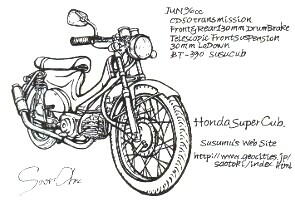 JUN90cc
CD50transmission
Front&Rear130mmDrumBrake
Telescopic FrontSuspension
30mm LoDown
BT-390 SusuCub
Honda Super Cub.
Susumu's Web Site
http://www.geocities.jp/